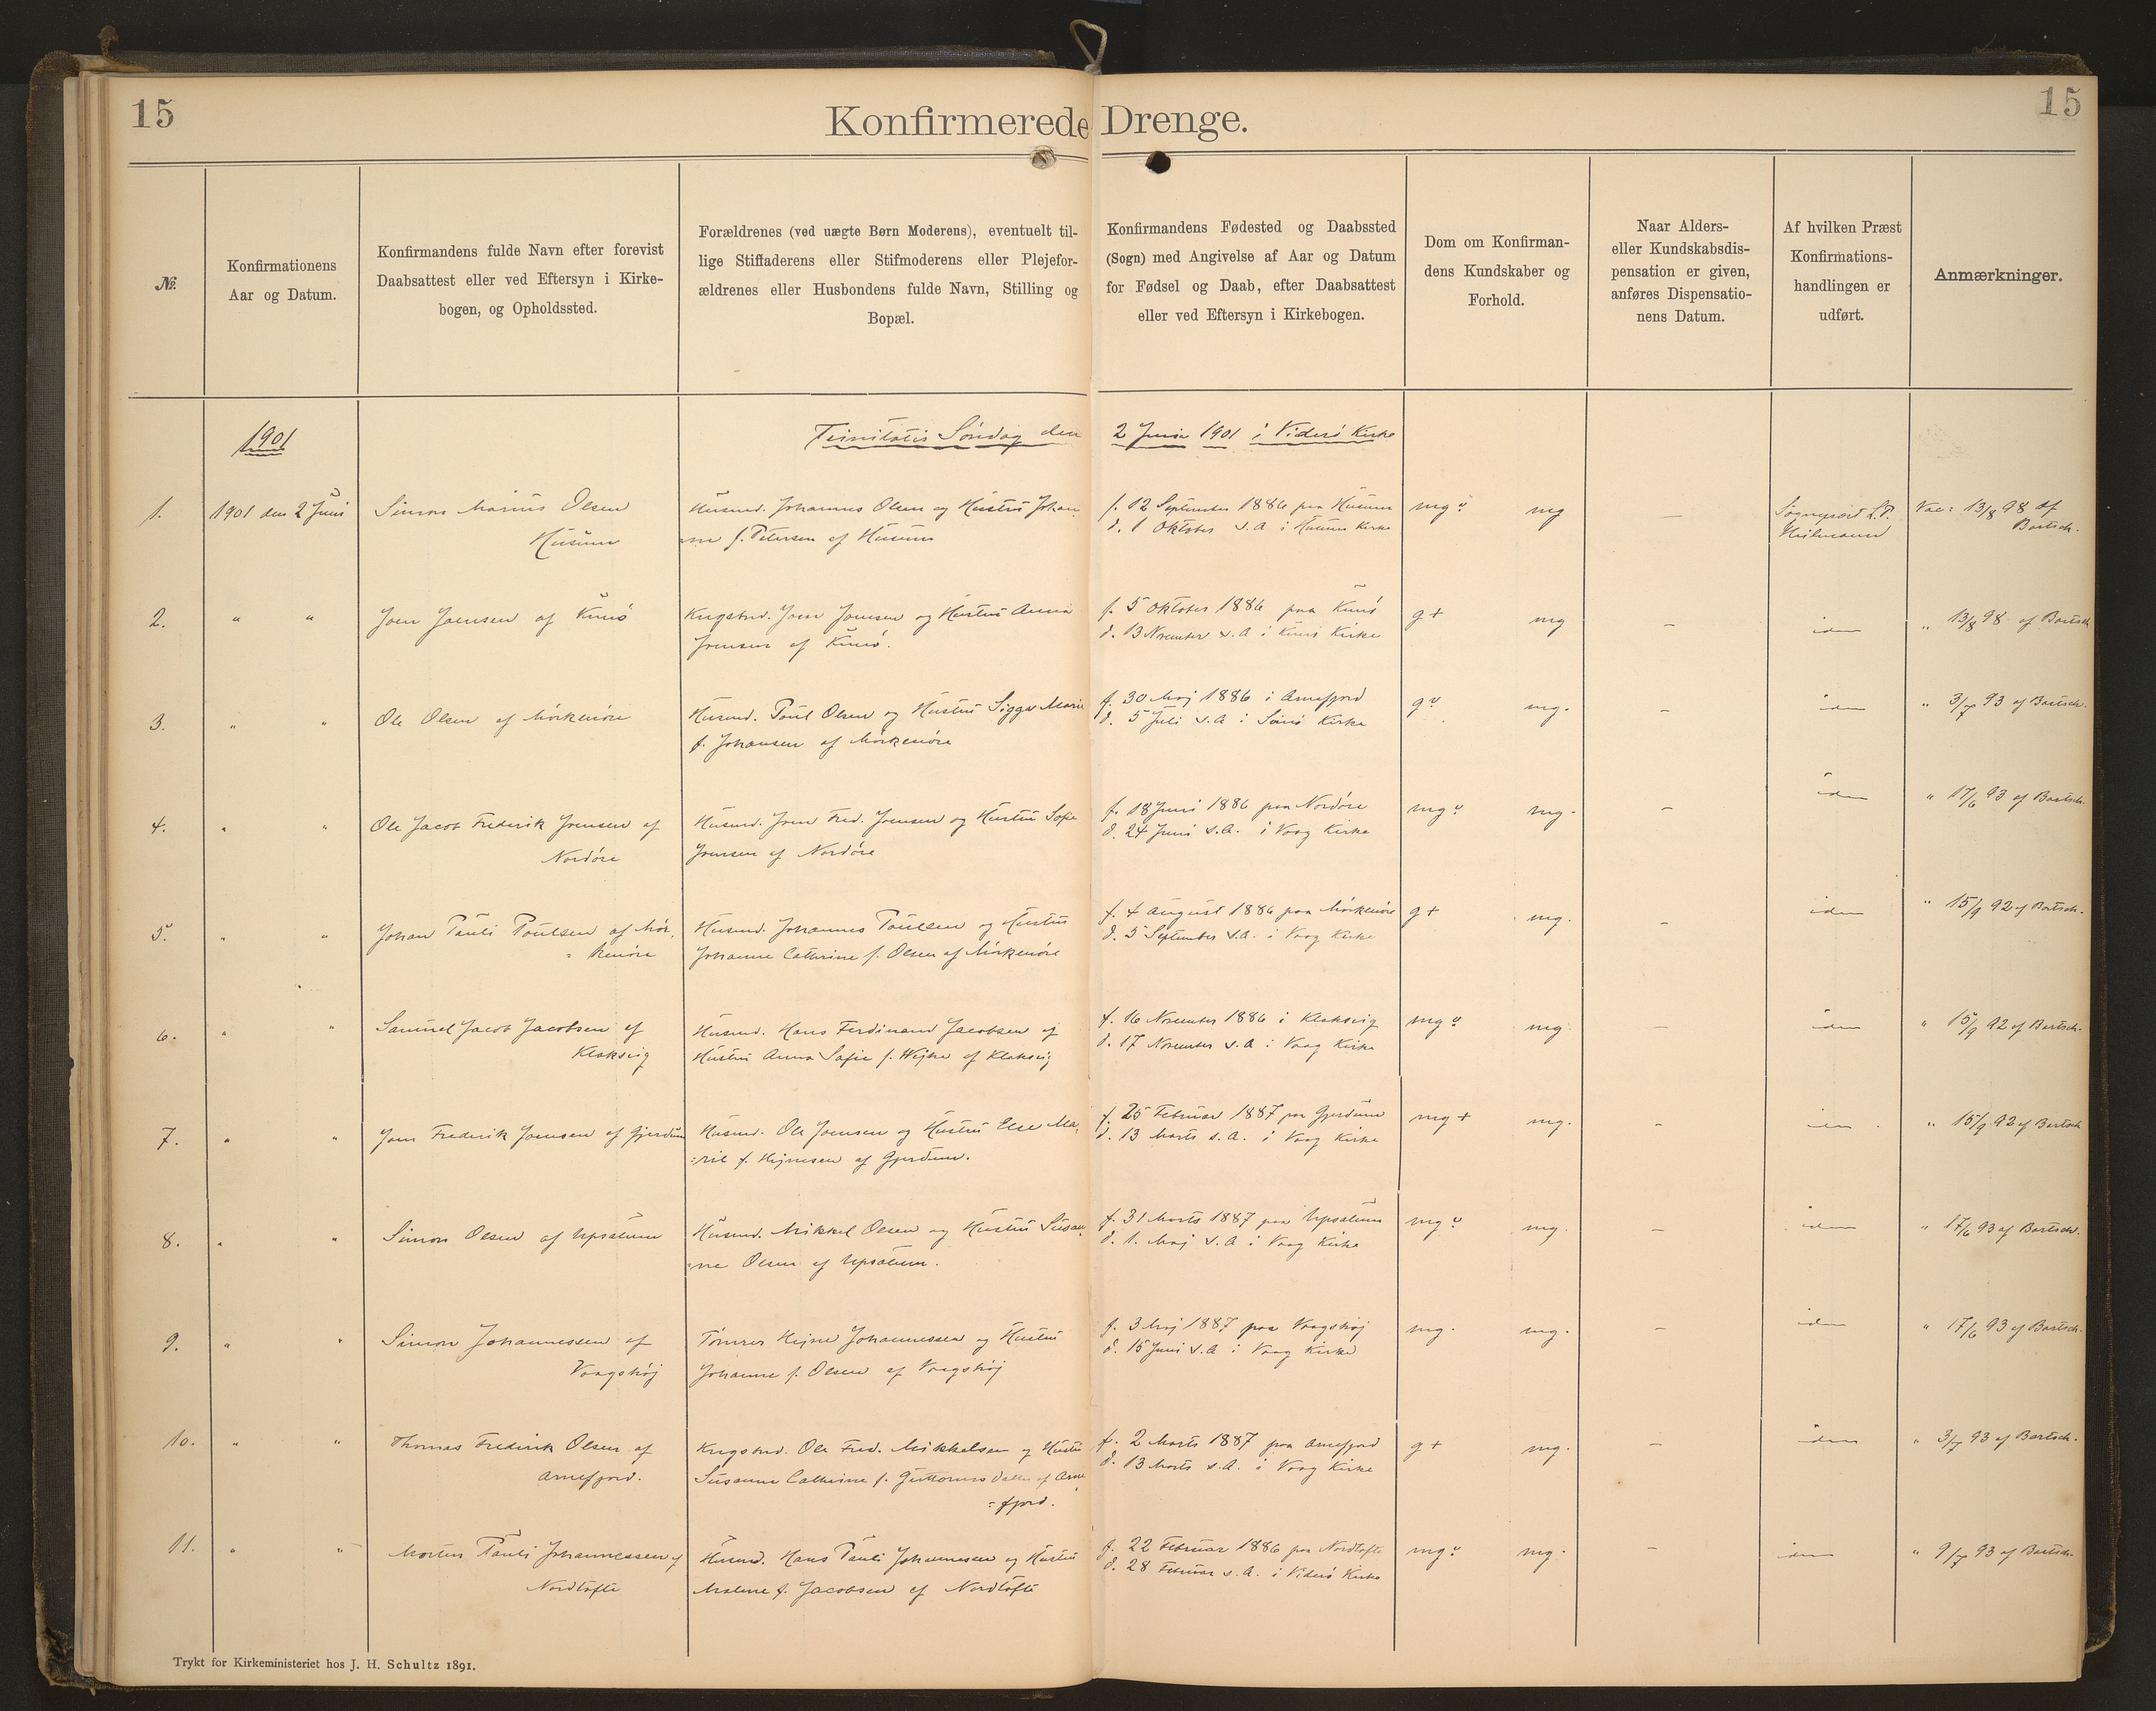 15
Konfirmerede Drenge.
15
№.
Konfirmationens
Aar og Datum.
Konfirmandens fulde Navn efter forevist
Daabsattest eller ved Eftersyn i Kirke-
bogen, og Opholdssted.
Forældrenes (ved uægte Børn Moderens), eventuelt til-
lige Stiffaderens eller Stifmoderens eller Plejefor-
ældrenes eller Husbondens fulde Navn, Stilling og
Bopæl.
Konfirmandens Fødested og Daabssted
(Sogn) med Angivelse af Aar og Datum
for Fødsel og Daab, efter Daabsattest
eller ved Eftersyn i Kirkebogen.
Dom om Konfirman-
dens Kundskaber og
Forhold.
Naar Alders-
eller Kundskabsdis-
pensation er given,
anføres Dispensatio-
nens Datum.
Af hvilken Præst
Konfirmations-
handlingen er
udført.
Anmærkninger.
1901
Trinitatis Søndag den 2 Junie 1901 i Viderø Kirke
1.
1901 den 2 Juni
Simon Marius Olsen
Husum
Husmd. Johannes Olsen og Hustru Johan
ne f. Petersen af Husum
f. 12 September 1886 paa Husum
d. 1 Oktober s.A. i Husum Kirke
mg
mg
—
Sognepræst
Vac: 13/8 98 af
Bartsch.
2.
" "
Joen Joensen af Kunø
Kngsbnd. Joen Joensen og Hustru Anna
Joensen af Kunø.
f. 5 Oktober 1886 paa Kunø
d. 13 November s.A i Kunø Kirke
g+
mg
—
idem
" 13/8 98 af Bartsch
3.
" "
Ole Olsen af Mørkenøre
Husmd. Poul Olsen og Hustru Sigga Marie
f. Johansen af Mørkenøre
f. 30 Maj 1886 i Arnefjord
d. 5 Juli s.A i Kirke
g
mg.
—
idem
" 3/7 93 af Bartsch.
4.
" "
Ole Jacob Frederik Joensen af
Nordøre
Husmd. Joen Fred. Joensen og Hustru Sofie
Joensen af Nordøre
f. 18 Juni 1886 paa Nordøre
d. 24 Juni s.A. i Vaag Kirke
mg
mg.
—
idem
" 17/6 93 af Bartsch.
5.
" "
Johan Pauli Poulsen af Mør-
= kenøre
Husmd. Johannes Poulsen og Hustru
Johanne Cathrine f. Olsen af Mørkenøre
f. 4 August 1886 paa Mørkenøre
d. 5 September s.A. i Vaag Kirke
g+
mg.
—
idem
" 15/9 92 af Bartsch.
6.
" "
Samuel Jacob Jacobsen af
Klaksvig
Husmd. Hans Ferdinand Jacobsen og
Hustru Anna Sofie f. Wejhe af Klaksvig
f. 16 November 1886 i Klaksvig
d. 17 November s.A i Vaag Kirke
mg
mg.
—
idem
" 15/9 92 af Bartsch.
7.
" "
Joen Frederik Joensen af Gjerdum
Husmd. Ole Joensen og Hustru Else Ma-
=rie f. Hejnesen af Gjerdum.
f. 25 Februar 1887 paa Gjerdum
d. 13 Marts s.A. i Vaag Kirke
mg +
mg.
—
idem
" 15/9 92 af Bartsch
8.
" "
Simon Olsen af Upsalum
Husmd. Mikkel Olsen og Hustru Susan-
=ne Olsen af Upsalum.
f. 31 Marts 1887 paa Upsalum
d. 1. Maj s.A i Vaag Kirke
mg
mg.
—
idem
" 17/6 93 af Bartsch.
9.
" "
Simon Johannessen af
Vaagshøj
Tømrer Hejne Johannessen og Hustru
Johanne f. Olsen af Vaagshøj
f. 3 Maj 1887 paa Vaagshøj
d. 15 Juni s.A i Vaag Kirke
mg.
mg.
—
idem
" 17/6 93 af Bartsch.
10.
" "
Thomas Frederik Olsen af
Arnefjord.
Kngsbnd. Ole Fred. Mikkelsen og Hustru
Susanne Cathrine f. Guttormsdatter af Arne
=fjord.
f. 2 Marts 1887 paa Arnefjord
d. 13 Marts s.A. i Vaag Kirke
g+
mg.
—
idem
" 3/7 93 af Bartsch.
11.
" "
Morten Pauli Johannessen af
Nordtofte
Husmd. Hans Pauli Johannesen og Hustru
Malene f. Jacobsen af Nordtofte
f. 22 Februar 1886 paa Nordtofte
d. 28 Februar s.A. i Viderø Kirke
mg
mg.
—
idem
" 9/7 93 af Bartsch.
Trykt for Kirkeministeriet hos J. H. Schultz 1891.